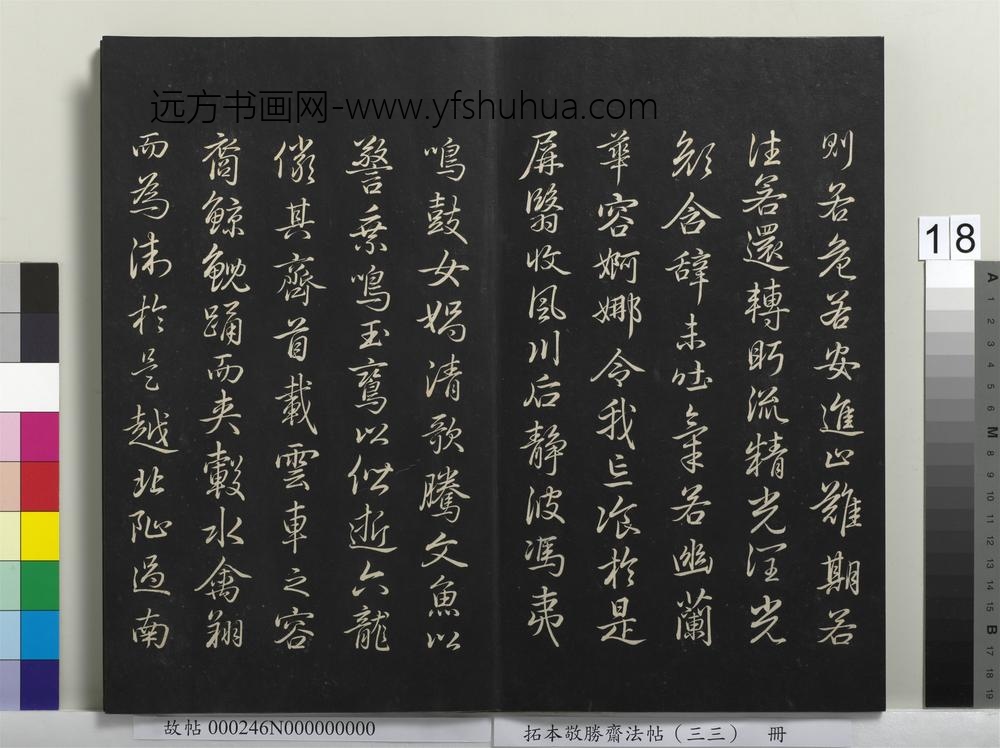 远方书画网-www.yfshuhua.com
則若危若安進止難期若
往若還轉眄流精光潤光
顏含辭未吐氣若幽蘭
華容婀娜令我忘飡於是
屏翳收風川后靜波馮夷
鳴鼓女媧清歌騰文魚以
警乘鳴玉鸞以偕逝六龍
儼其齊首載雲車之容
裔鯨鯢踊而夾轂水禽翔
而為衛於是越北沚過南
18
故帖 000246N000000000
拓本敬勝齋法帖（三三） 冊
A
1
2
3
4
5
6
M
8
9
10
11
12
13
14
15
B
17
18
19